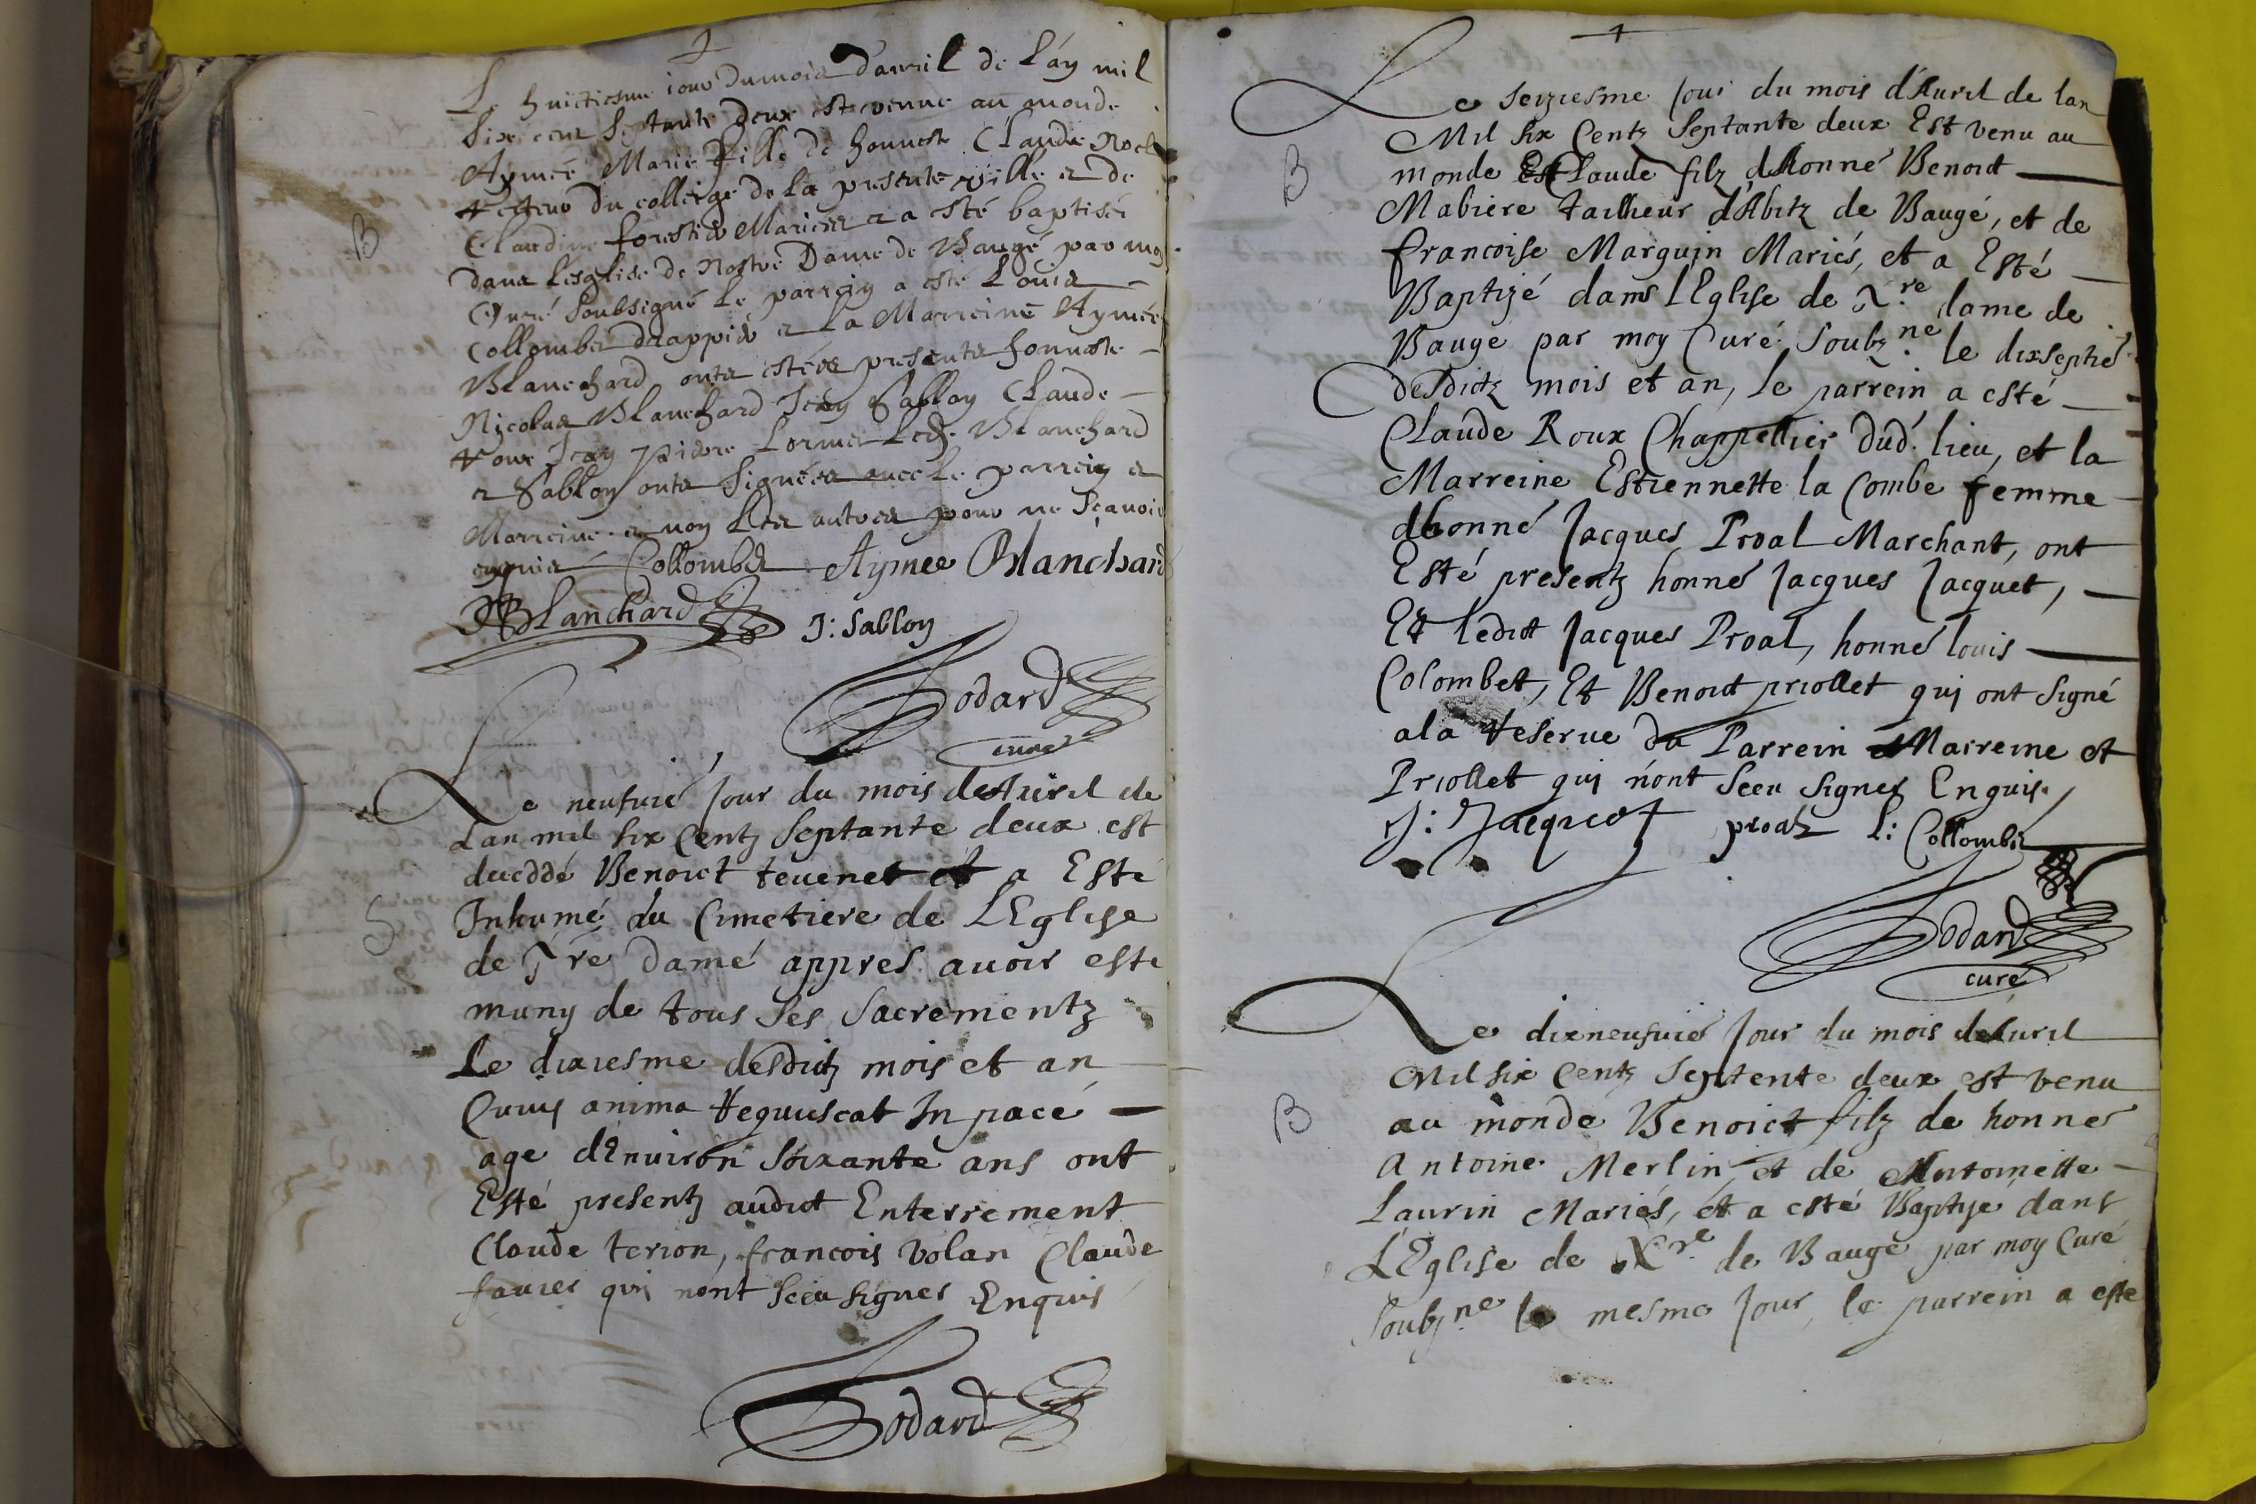 Le huictiesme iour du mois d'auril de L'an mil
Six cent Septante deux est venue au monde
Aymée Marie fille de honneste Claude Noel
recteur du colleige de la presente ville et de
B
Claudine forestier Mariés et a esté baptisée
dans lesglise de Nostre Dame de Baugé par moy
Curé Soubsigné le parrein a esté Louis
Collombet drappier et la Marreine Aymée
Blanchard ont estées presents honneste
Nicolas Blanchard Jean Sabloy Claude
roux Jean Lormet Led. Blanchard
et Sabloy onts signéés auec le parrein et
Marreine et non Les autres pour ne sçavoir
enquis Collombet Aymee Blanchard
Blanchard J: Sabloy
Godard
curé
Le neufuié Jour du mois de Auril de
Lan mil six Centz Septante deux est
duceddé Benoict teuenet et a Esté
S
Inhumé du Cimetiere de LEglise
de Nre Damé appres auoir esté
muny de tous Ses Sacrementz
Le dixiesme desdictz mois et an
Cuius anima requiescat In pacé
age dEnuiron soixante ans ont
Esté presentz audict Enterrement
Claude terion, francois Volan Claude
fauier qui nont Sceu signer Enquis
Godard
Le seiziesme Jour du mois d'Auril de lan
Mil six Centz Septante deux Est venu au
B
monde Claude filz dhonné Benoict
Mabiere tailheur d'Abitz de Baugé, et de
francoise Marguin Mariés, et a Esté
Baptizé dans LEglise de Nre dame de
Bauge par moy Curé Soubzne le dixseptié
desdictz mois et an, le parrein a esté
Claude Roux Chappellier dud. lieu, et la
Marreine Estiennette la Combe femme
dhonné Jacques Proal Marchant, ont
Esté presentz honné Jacques Jacquet,
Et ledict Jacques Proal, honné louis
Colombet, Et Benoict priollet qui ont signé
ala reserue du Parrein et Marreine et
Priollet qui n'ont Sceu signer Enquis
J: Jacquet proal L: Collombet
Godard
curé
Le dixneufuié Jour du mois deAuril
Mil six Centz Septente deux est venu
B
au monde Benoict filz de honné
Antoine Merlin, et de Antoinette
Laurin Mariés, et a esté Baptizé dans
LEglise de Nre de Baugé par moy Curé
Soubzne le mesme Jour, le parrein a esté